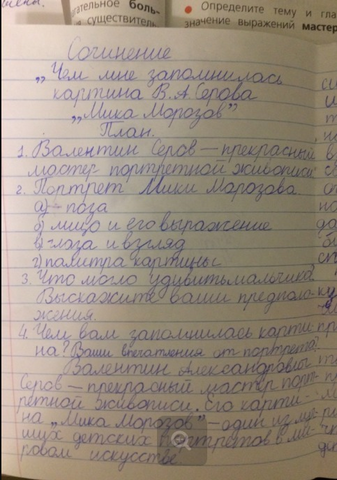 гательное боль-
и существител
Определите тему и гла
значение выражений мастер
Сочинение
„Чем мне запомнилась
картина В.А.Серова
„Мика Морозов"
План.
1. Валентин Серов — прекрасный
мастер портретной живописи
2. Портрет Мики Морозова
а) - поза
б) лицо и его выражение
в) глаза и взгляд
г) палитра картины
3. Что могло удивить мальчика?
Выскажите ваши предполо-
жения.
4. Чем вам запомнилась карти
на? Ваши впечатления от портрета.
Валентин Александрович
Серов — прекрасный мастер пор-
ретной живописи. Его карти-
на „Мика Морозов" — один из
ших детских портретов в ми-
ровом искусстве